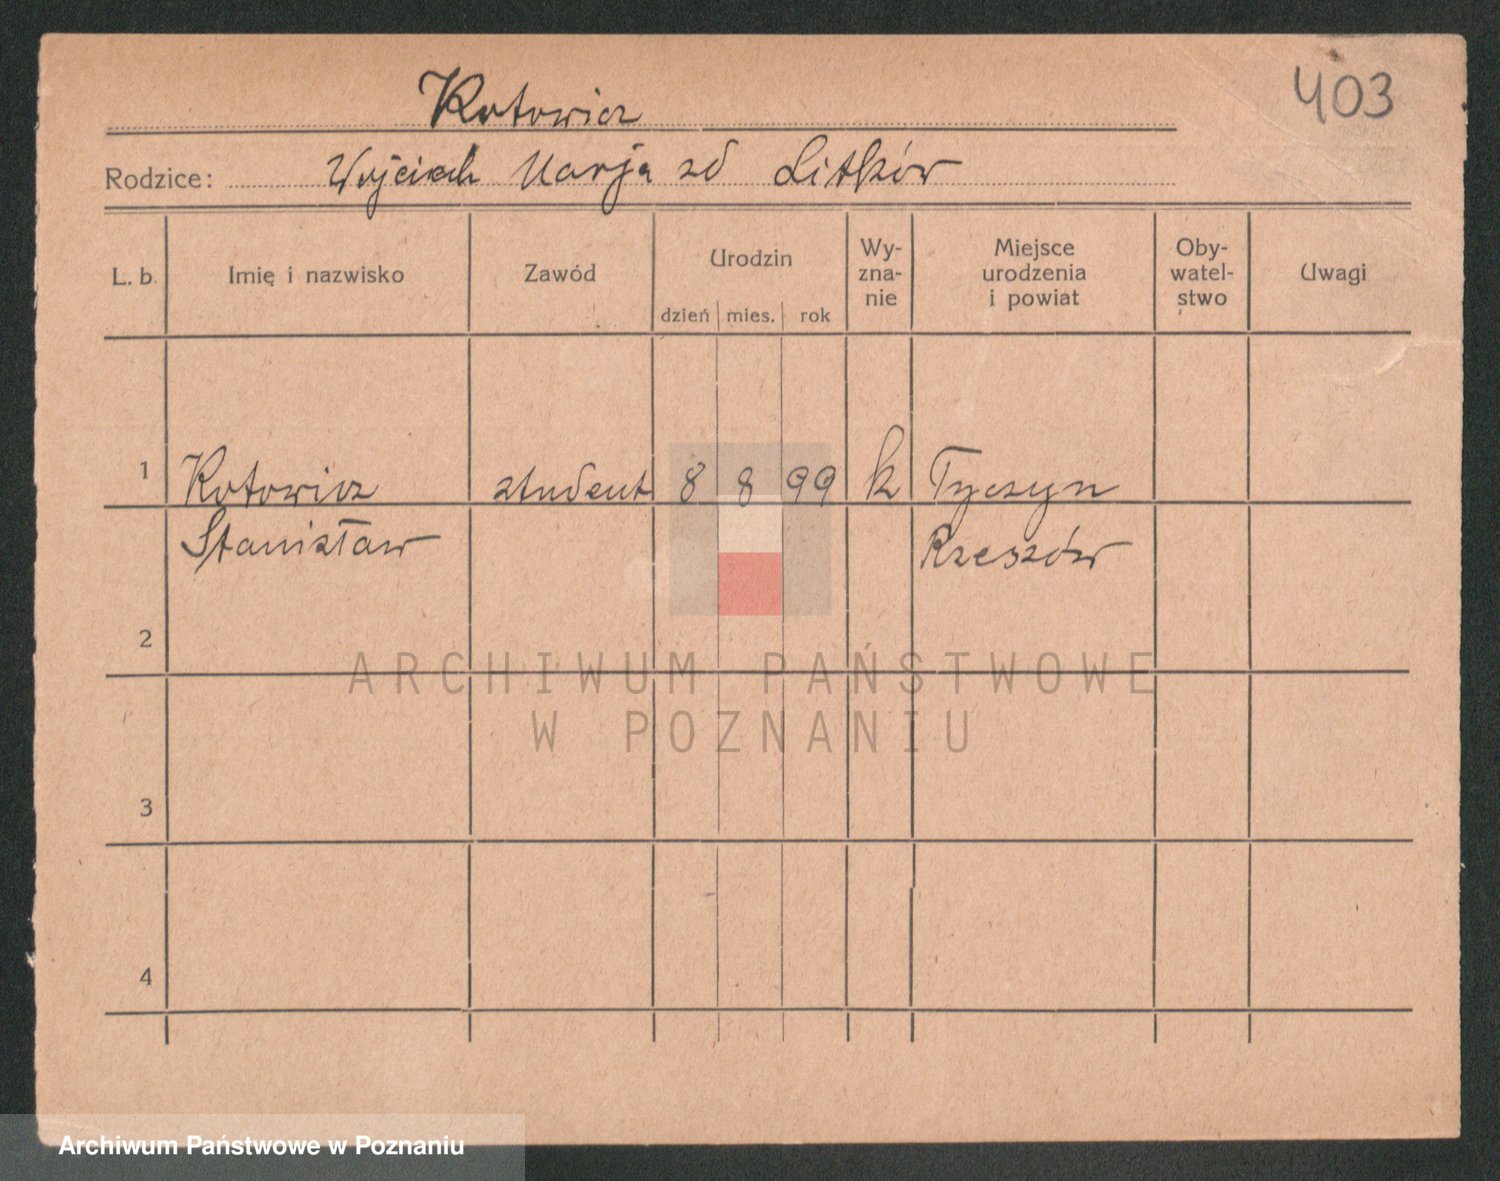 403
Kotowicz
Rodzice: Wojciech Marja zd Litków
L. b. Imię i nazwisko Zawód Urodzin dzień mies. rok Wy-zna-nie Miejsce urodzenia i powiat Oby-watel-stwo Uwagi
1 Kotowicz student 8 8 99 k Tyczyn
Stanisław Rzeszów
2
3
4
ARCHIWUM PAŃSTWOWE
W POZNANIU
Archiwum Państwowe w Poznaniu